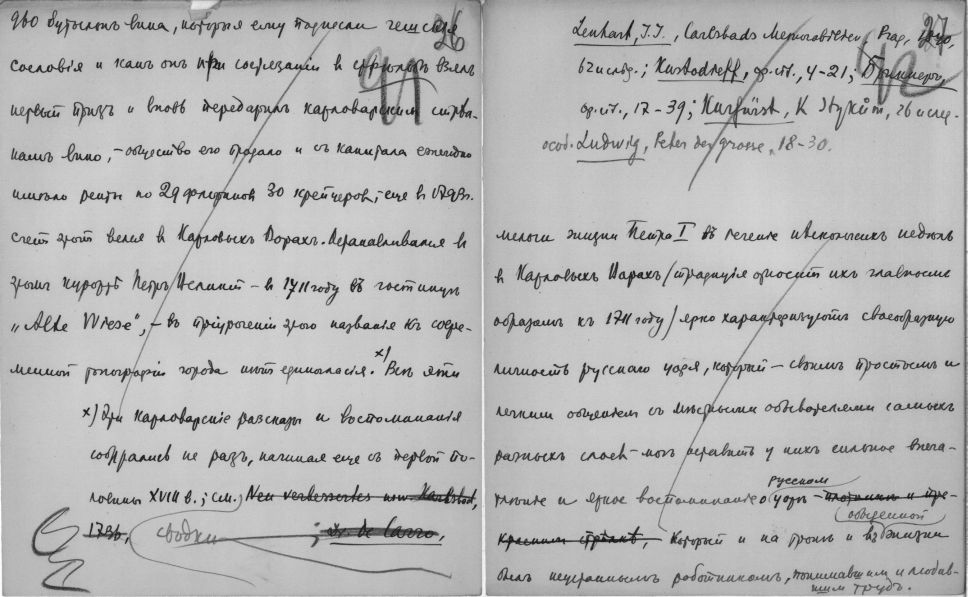 два бутылокъ вина, которыя ему поднесли чешскія
26
сословія и какъ онъ при состязаніи в стрѣльбѣ взялъ
91
первый призъ и вновь передарилъ карловарскимъ
камъ вино, – общество его продало и съ капитала ежегодно
имѣло ренты по 29 флориновъ 30 крейцеровъ; еще в
счетъ этотъ велся в Карловыхъ Варахъ. Останавливался в
этомъ курортѣ Петръ Великій – в 1711 году въ гостиницѣ
„Alte Wiese“, – въ пріуроченіи этого названія къ совре-
менной топографіи города нѣтъ единогласія. х) Всѣ эти
х) Эти карловарскіе разсказы и воспоминанія
собирались не разъ, начиная еще съ первой по-
ловины XVIII в.; см. Neu verbessertes
1736, сводки ; dr. de Carro,
Lenhart, J.J., Carlsbads Memorabilien, Prag, 1840,
27
62 и слѣд.; Kustodieff, op. cit., 4–21;
92
op. cit., 17–39; Kurfürst, K. 26 и слѣд.
особ. Ludwig, Peter der grosse, 18–30.
мелочи жизни Петра I въ теченіе нѣсколькихъ недѣль
в Карловыхъ Варахъ /традиція относитъ ихъ главнымъ
образомъ къ 1711 году/ ярко характеризуютъ своеобразную
личность русскаго царя, который – своимъ простымъ и
легкимъ общеніемъ съ мѣстными обывателями самыхъ
разныхъ слоевъ – могъ оставить у нихъ сильное впеча-
тлѣніе и яркое воспоминаніе о русскомъ царѣ – плотникѣ и пре-
красномъ стрѣлкѣ, который и на тронѣ и въ обыденной жизни
былъ неустаннымъ работникомъ, понимавшимъ и любив-
шимъ трудъ.